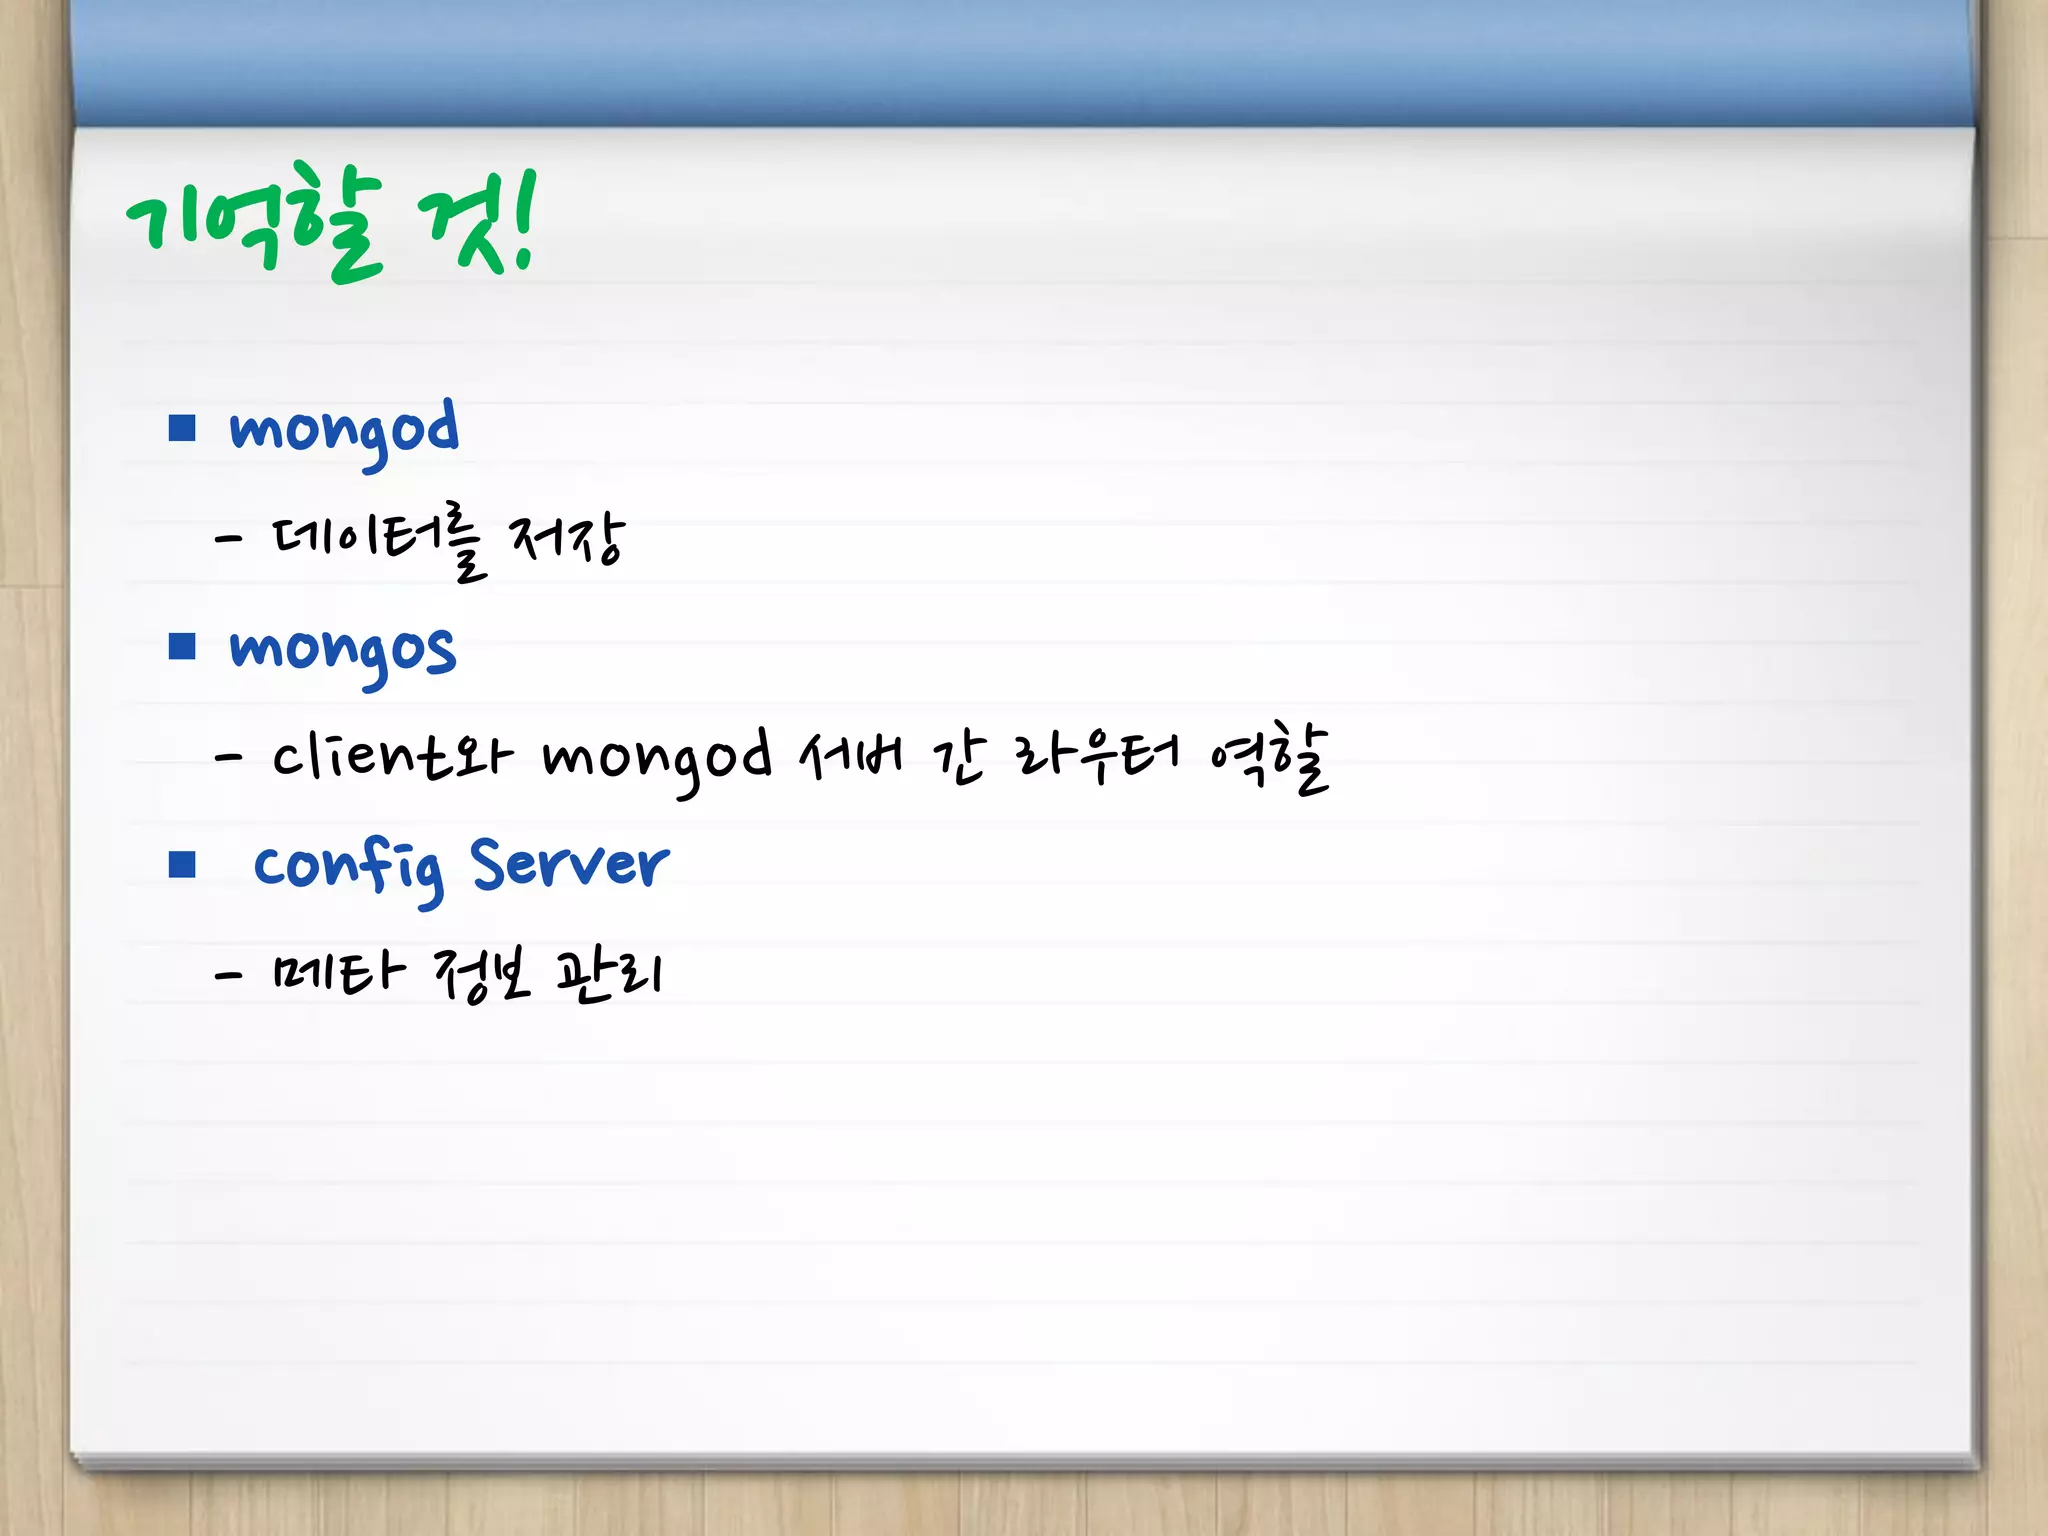 기억할 것!
■ mongod
- 데이터를 저장
■ mongos
- client와 mongod 서버 간 라우터 역할
■ config Server
- 메타 정보 관리